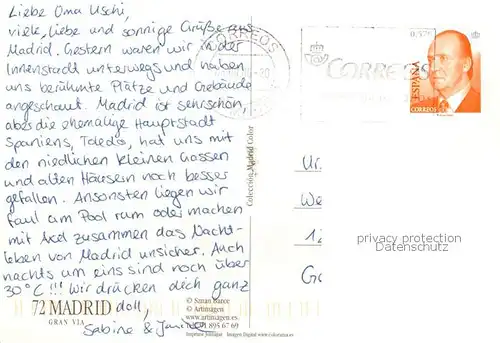 Liebe Oma Uschi,
viele, liebe und sonnige Grüße aus
Madrid. Gestern waren wir in der
Innenstadt unterwegs und haben
uns berühmte Plätze und Gebäude
angeschaut. Madrid ist sehr schön,
aber die ehemalige Hauptstadt
Spaniens, Toledo, hat uns mit
den niedlichen kleinen Gassen
und alten Häusern noch besser
gefallen. Ansonsten liegen wir
faul am Pool rum oder machen
mit Axel zusammen das Nacht-
leben von Madrid unsicher. Auch
nachts um eins sind noch über
30°C!!! Wir drücken dich ganz
doll,
Sabine &
72 MADRID
GRAN VIA
Colección Madrid Color
© Artimagen
www.artimagen.es
91 895 67 69
CORREOS
CORREOS
0,57€
ESPAÑA
CORREOS
Ur.
We
12
Ge
privacy protection
Datenschutz